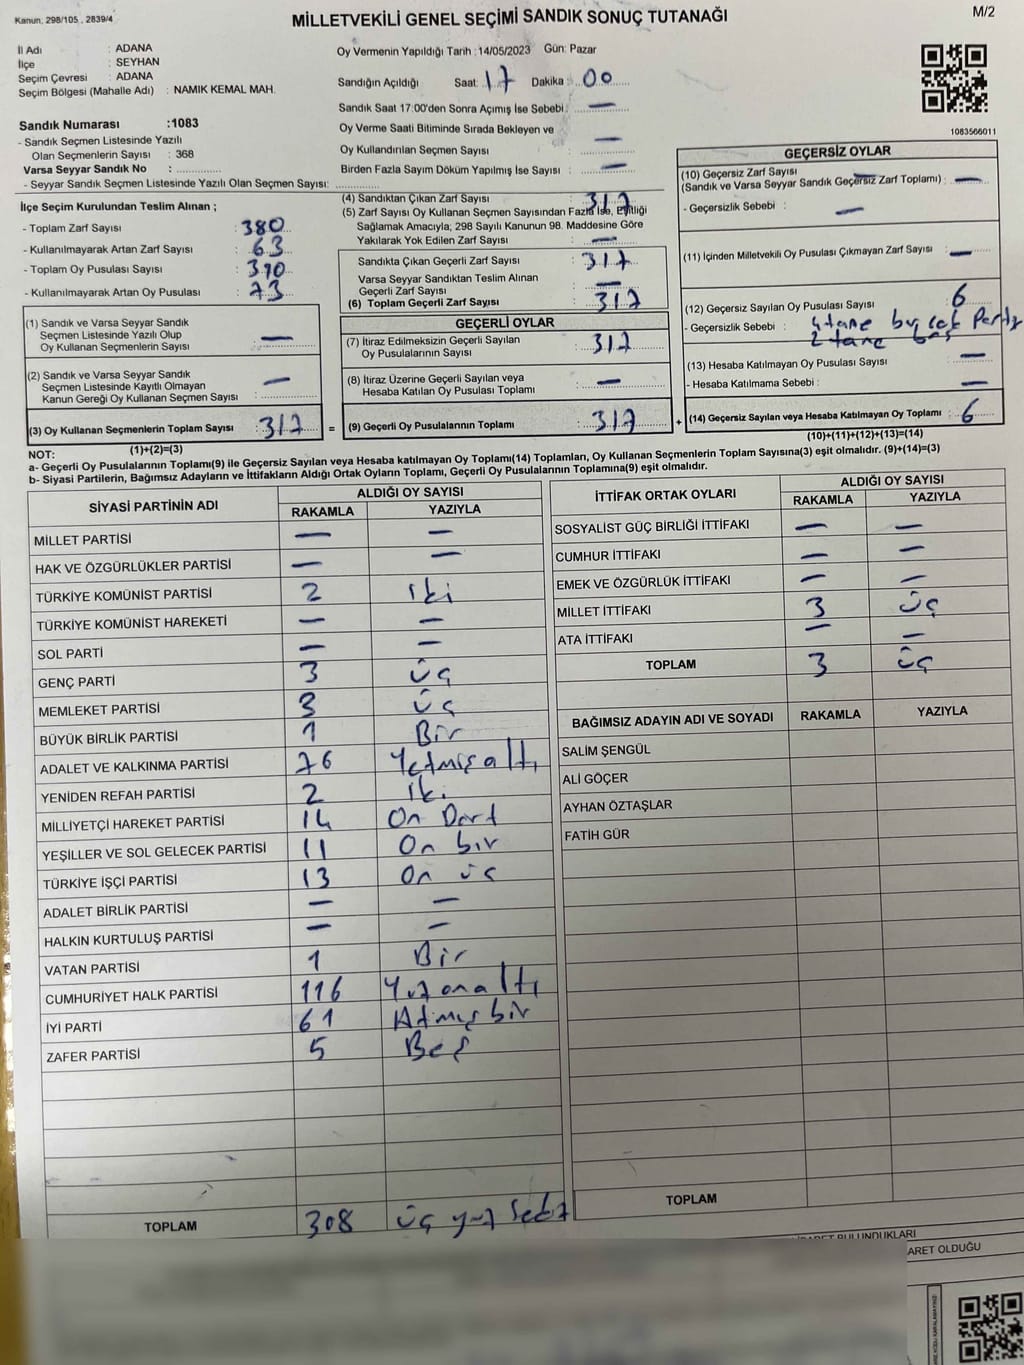 Kanun: 298/105, 2839/4
MİLLETVEKİLİ GENEL SEÇİMİ SANDIK SONUÇ TUTANAĞI
M/2
İl Adı : ADANA
İlçe : SEYHAN
Seçim Çevresi : ADANA
Seçim Bölgesi (Mahalle Adı) : NAMIK KEMAL MAH.
Oy Vermenin Yapıldığı Tarih : 14/05/2023 Gün: Pazar
Sandığın Açıldığı Saat: 17 Dakika : 00
Sandık Saat 17:00'den Sonra Açımış İse Sebebi : —
Oy Verme Saati Bitiminde Sırada Bekleyen ve
Oy Kullandırılan Seçmen Sayısı : —
Birden Fazla Sayım Döküm Yapılmış İse Sayısı : —
1083566011
Sandık Numarası :1083
- Sandık Seçmen Listesinde Yazılı
Olan Seçmenlerin Sayısı : 368
Varsa Seyyar Sandık No :
- Seyyar Sandık Seçmen Listesinde Yazılı Olan Seçmen Sayısı:
İlçe Seçim Kurulundan Teslim Alınan ;
- Toplam Zarf Sayısı : 380
- Kullanılmayarak Artan Zarf Sayısı : 63
- Toplam Oy Pusulası Sayısı : 390
- Kullanılmayarak Artan Oy Pusulası : 73
(1) Sandık ve Varsa Seyyar Sandık
Seçmen Listesinde Yazılı Olup
Oy Kullanan Seçmenlerin Sayısı : —
(2) Sandık ve Varsa Seyyar Sandık
Seçmen Listesinde Kayıtlı Olmayan
Kanun Gereği Oy Kullanan Seçmen Sayısı : —
(3) Oy Kullanan Seçmenlerin Toplam Sayısı : 317
(1)+(2)=(3)
=
(4) Sandıktan Çıkan Zarf Sayısı : 317
(5) Zarf Sayısı Oy Kullanan Seçmen Sayısından Fazla İse, Eşitliği
Sağlamak Amacıyla, 298 Sayılı Kanunun 98. Maddesine Göre
Yakılarak Yok Edilen Zarf Sayısı : —
Sandıkta Çıkan Geçerli Zarf Sayısı : 317
Varsa Seyyar Sandıktan Teslim Alınan
Geçerli Zarf Sayısı : —
(6) Toplam Geçerli Zarf Sayısı : 317
GEÇERLİ OYLAR
(7) İtiraz Edilmeksizin Geçerli Sayılan
Oy Pusulalarının Sayısı : 317
(8) İtiraz Üzerine Geçerli Sayılan veya
Hesaba Katılan Oy Pusulası Toplamı : —
(9) Geçerli Oy Pusulalarının Toplamı : 317
+
GEÇERSİZ OYLAR
(10) Geçersiz Zarf Sayısı
(Sandık ve Varsa Seyyar Sandık Geçersiz Zarf Toplamı) : —
- Geçersizlik Sebebi : —
(11) İçinden Milletvekili Oy Pusulası Çıkmayan Zarf Sayısı : —
(12) Geçersiz Sayılan Oy Pusulası Sayısı : 6
- Geçersizlik Sebebi : 4 tane birçok Parti
2 tane boş
(13) Hesaba Katılmayan Oy Pusulası Sayısı : —
- Hesaba Katılmama Sebebi : —
(14) Geçersiz Sayılan veya Hesaba Katılmayan Oy Toplamı : 6
(10)+(11)+(12)+(13)=(14)
NOT:
a- Geçerli Oy Pusulalarının Toplamı(9) ile Geçersiz Sayılan veya Hesaba katılmayan Oy Toplamı(14) Toplamları, Oy Kullanan Seçmenlerin Toplam Sayısına(3) eşit olmalıdır. (9)+(14)=(3)
b- Siyasi Partilerin, Bağımsız Adayların ve İttifakların Aldığı Ortak Oyların Toplamı, Geçerli Oy Pusulalarının Toplamına(9) eşit olmalıdır.
SİYASİ PARTİNİN ADI ALDIĞI OY SAYISI
RAKAMLA YAZIYLA
MİLLET PARTİSİ — —
HAK VE ÖZGÜRLÜKLER PARTİSİ — —
TÜRKİYE KOMÜNİST PARTİSİ 2 iki
TÜRKİYE KOMÜNİST HAREKETİ — —
SOL PARTİ — —
GENÇ PARTİ 3 üç
MEMLEKET PARTİSİ 3 üç
BÜYÜK BİRLİK PARTİSİ 1 Bir
ADALET VE KALKINMA PARTİSİ 76 Yetmiş altı
YENİDEN REFAH PARTİSİ 2 iki
MİLLİYETÇİ HAREKET PARTİSİ 14 On Dört
YEŞİLLER VE SOL GELECEK PARTİSİ 11 On bir
TÜRKİYE İŞÇİ PARTİSİ 13 On üç
ADALET BİRLİK PARTİSİ — —
HALKIN KURTULUŞ PARTİSİ — —
VATAN PARTİSİ 1 Bir
CUMHURİYET HALK PARTİSİ 116 Yüz on altı
İYİ PARTİ 61 Atmış bir
ZAFER PARTİSİ 5 Beş
TOPLAM 308 üç yüz Sekiz
İTTİFAK ORTAK OYLARI ALDIĞI OY SAYISI
RAKAMLA YAZIYLA
SOSYALİST GÜÇ BİRLİĞİ İTTİFAKI — —
CUMHUR İTTİFAKI — —
EMEK VE ÖZGÜRLÜK İTTİFAKI — —
MİLLET İTTİFAKI 3 üç
ATA İTTİFAKI — —
TOPLAM 3 üç
BAĞIMSIZ ADAYIN ADI VE SOYADI RAKAMLA YAZIYLA
SALİM ŞENGÜL
ALİ GÖÇER
AYHAN ÖZTAŞLAR
FATİH GÜR
TOPLAM
BULUNDUKLARI
ARET OLDUĞU